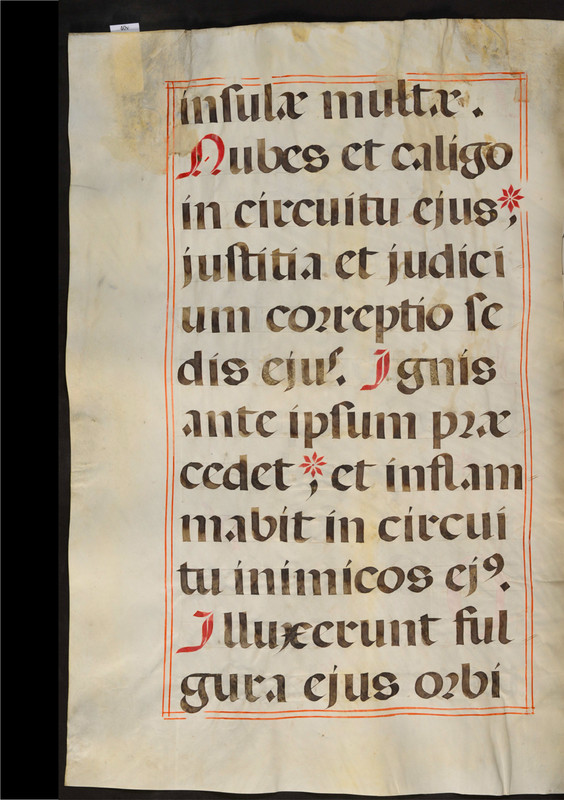 inſulæ multæ.
Nubes et caligo
in circuitu ejus*;
juſtitia et judici
um correptio ſe
dis ejuſ. Ignis
ante ipſum præ
cedet*; et inflam
mabit in circui
tu inimicos ejꝰ.
Illuxerunt ful
gura ejus orbi